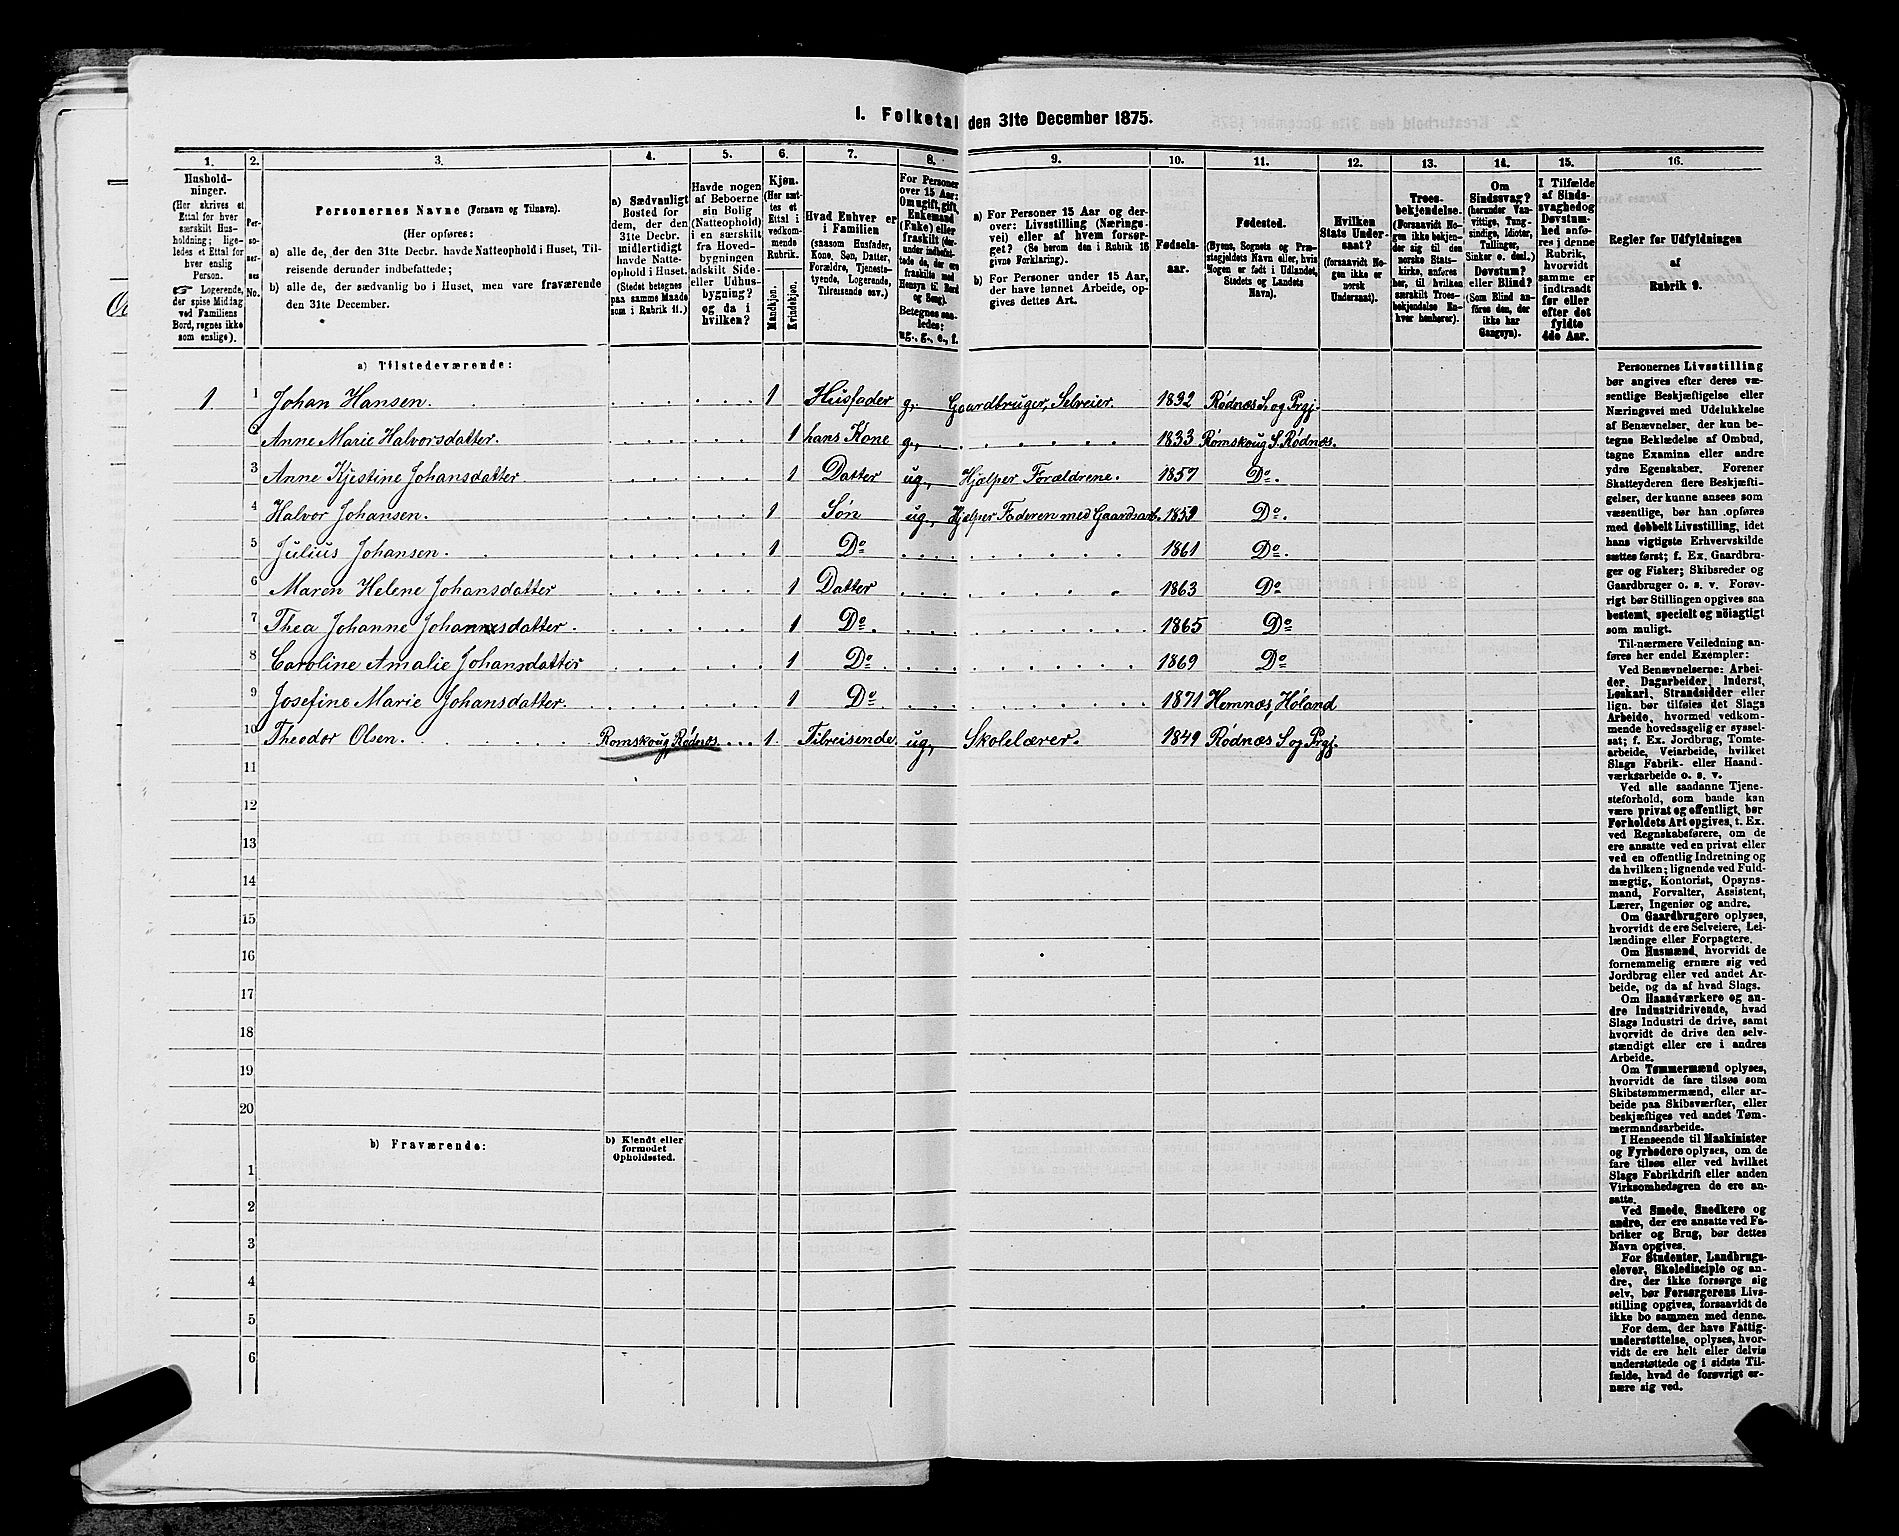 I. Folketal den 31te December 1875.
1. 2. 3. 4. 5. 6. 7. 8. 9. 10. 11. 12. 13. 14. 15. 16.
Husholdninger.
(Her skrives et
Ettal for hver
særskilt Husholdning;
ligeledes et Ettal for
hver enslig
Person.
☞ Logerende,
der spise Middag
ved Familiens
Bord, regnes ikke
som enslige).
Personernes No.
Personernes Navne (Fornavn og Tilnavn).
(Her opføres:
a) alle de, der den 31te Decbr. havde Natteophold i Huset, Tilreisende derunder indbefattede;
b) alle de, der sædvanlig bo i Huset, men vare fraværende
den 31te December.
a) Sædvanligt
Bosted for
dem, der den
31te Decbr.
midlertidigt
havde Natteophold i Huset.
(Stedet betegnes
paa samme Maade
som i Rubrik 11.)
Havde nogen
af Beboerne
sin Bolig
(Natteophold)
i en særskilt
fra Hovedbygningen
adskilt Side-
eller Udhusbygning?
og da i
hvilken?
Kjøn.
(Her sættes et
Ettal i
vedkommende
Rubrik.
Mandkjøn.
Kvindekjøn.
Hvad Enhver er
i Familien
(saasom Husfader,
Kone, Søn, Datter,
Forældre, Tjenestetyende, Logerende,
Tilreisende osv.)
For Personer
over 15 Aar:
Om ugift, gift,
Enkemand
(Enke) eller
fraskilt (derunder indbefattede de, der ere
fraskilte med
Hensyn til Bord
og Seng).
Betegnes saaledes:
ug., g., e., f.
a) For Personer 15 Aar og derover: Livsstilling (Næringsvei) eller af hvem forsørget? (Se herom den i Rubrik 16
givne Forklaring).
b) For Personer under 15 Aar,
der have lønnet Arbeide, opgives dettes Art.
Fødselsaar.
Fødested.
(Byens, Sognets og Præstegjeldets Navn eller, hvis
Nogen er født i Udlandet,
Stedets og Landets
Navn).
Hvilken
Stats Undersaat?
(forsaavidt Nogen ikke er
norsk
Undersaat).
Troesbekjendelse.
(Forsaavidt Nogen ikke bekjender sig til den
norske Statskirke, anføres
her, til hvilken
særskilt Troesbekjendelse Enhver henhører).
Om
Sindssvag?
(herunder Vanvittige, Tungsindige, Idioter,
Tullinger,
Sinker o. desl.)
Døvstum?
eller Blind?
(Som Blind anføres den, der
ikke har
Gangsyn).
I Tilfælde
af Sindssvaghed og
Døvstumhed anføres i denne
Rubrik,
hvorvidt
samme er
indtraadt
før eller
efter det
fyldte
4de Aar.
Regler for Udfyldningen
af
Rubrik 9.
a) Tilstedeværende:
1 1 Johan Hansen. 1 Husfader g., Gaardbruger, Selveier. 1832 Rødnæs S. og Prgj.
2 Anne Marie Halvorsdatter. 1 hans Kone g., 1833 Rømskoug S. Rødnæs.
3 Anne Kjestine Johansdatter 1 Datter ug., Hjælper Forældrene. 1857 Do.
4 Halvor Johansen. 1 Søn ug., Hjælper Faderen med Gaardsarb. 1859 Do.
5 Julius Johansen. 1 Do 1861 Do.
6 Maren Helene Johansdatter 1 Datter 1863 Do
7 Thea Johanne Johannesdatter. 1 Do. 1865 Do
8 Caroline Amalie Johansdatter 1 Do. 1869 Do
9 Josefine Marie Johansdatter. 1 Do 1871 Hemnæs, Høland
10 Theodor Olsen. Romskoug, Rødnæs. 1 Tilreisende ug., Skolelærer. 1849 Rødnæs S. og Prgj.
11
12
13
14
15
16
17
18
19
20
b) Fraværende:
b) Kjendt eller
formodet
Opholdssted.
1
2
3
4
5
6
Personernes Livsstilling
bør angives efter deres væsentlige Beskjæftigelse eller
Næringsvei med Udelukkelse
af Benævnelser, der kun betegne Beklædelse af Ombud,
tagne Examina eller andre
ydre Egenskaber. Forener
Skatteyderen flere Beskjæftigelser, der kunne ansees som
væsentlige, bør han opføres
med dobbelt Livsstilling, idet
hans vigtigste Erhvervskilde
sættes først; f. Ex. Gaardbruger og Fisker; Skibsreder og
Gaardbruger o. s. v. Forøvrigt bør Stillingen opgives saa
bestemt, specielt og nöiagtigt
som muligt.
Til nærmere Veiledning anføres her endel Exempler:
Ved Benævnelserne: Arbeider, Dagarbeider, Inderst,
Løskarl, Strandsidder eller
lign. bør tilføies det Slags
Arbeide, hvormed vedkommende hovedsagelig er sysselsat; f. Ex. Jordbrug, Tomtearbeide, Veiarbeide, hvilket
Slags Fabrik- eller Haandværksarbeide o. s. v.
Ved alle saadanne Tjenesteforhold, som baade kan
være privat og offentligt, bør
Forholdets Art opgives, t. Ex.
ved Regnskabsførere, om de
ere ansatte ved en privat eller
ved en offentlig Indretning og
da hvilken; lignende ved Fuldmægtig, Kontorist, Opsynsmand, Forvalter, Assistent,
Lærer, Ingeniør og andre.
Om Gaardbrugere oplyses,
hvorvidt de ere Selveiere, Leilændinge eller Forpagtere.
Om Husmænd, hvorvidt de
fornemmelig ernære sig ved
Jordbrug eller ved andet Arbeide, og da af hvad Slags.
Om Haandværkere og andre Industridrivende, hvad
Slags Industri de drive, samt
hvorvidt de drive den selvstændigt eller ere i andres
Arbeide.
Om Tømmermænd oplyses,
hvorvidt de fare tilsøs som
Skibstømmermænd, eller arbeide paa Skibsværfter, eller
beskjæftiges ved andet Tømmermandsarbeide.
I Henseende til Maskinister
og Fyrbødere oplyses, om de
fare tilsøs eller ved hvilket
Slags Fabrikdrift eller anden
Virksomhedsgren de ere ansatte.
Ved Smede, Snedkere og
andre, der ere ansatte ved Fabriker og Brug, bør dettes
Navn opgives.
For Studenter, Landbrugselever, Skoledisciple og andre, der ikke forsørge sig
selv, bør Forsørgerens Livsstilling opgives, forsaavidt de
ikke bo sammen med denne.
For dem, der have Fattigunderstøttelse, oplyses, hvorvidt de ere helt eller delvis
understøttede og i sidste Tilfælde, hvad de forøvrigt ernære sig ved.